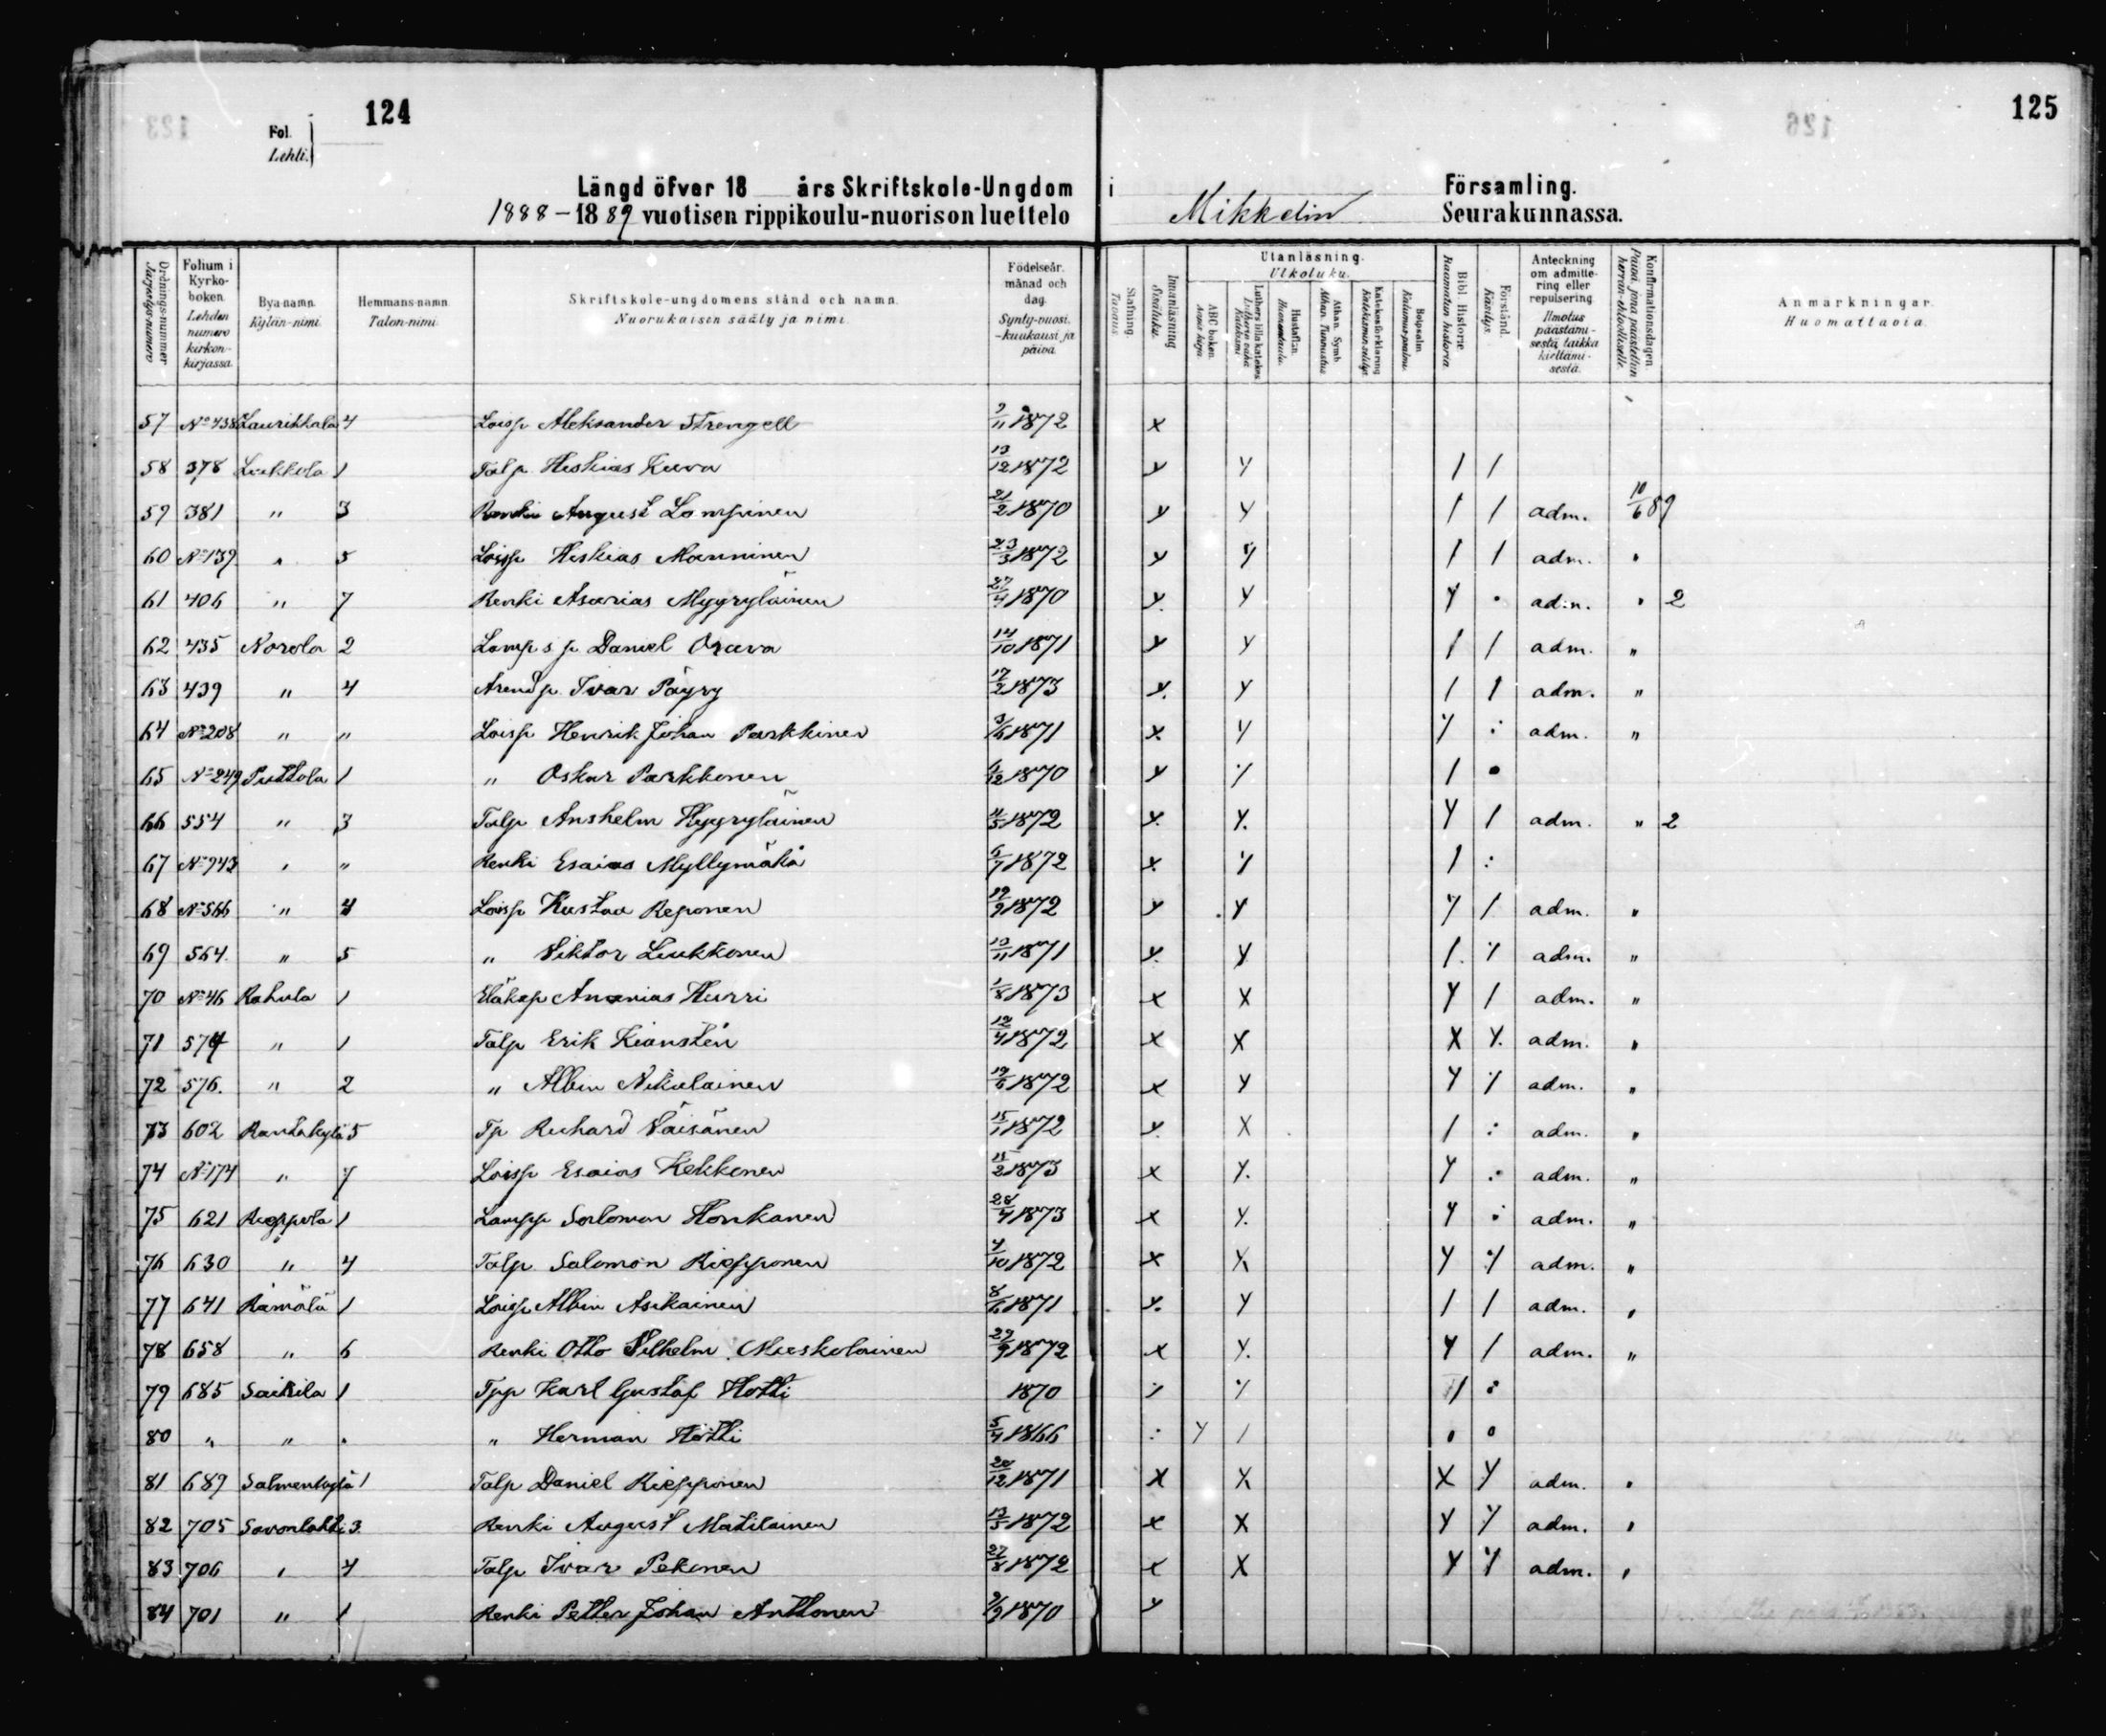 124
125
Fol.
Lehti.
Längd öfver 18 års Skriftskole-Ungdom i Församling.
1888-1889 vuotisen rippikoulu-nuorison luettelo Mikkelin Seurakunnassa.
Ordnings-nummer Järjestys-numero
Folium i Kyrko-boken. Lehden numero kirkon-kirjassa.
Bya-namn. Kylän-nimi.
Hemmans-namn. Talon-nimi.
Skriftskole-ungdomens stånd och namn. Nuorukaisen sääty ja nimi.
Födelseår. månad och dag. Synty-vuosi. -kuukausi ja päivä.
Stafning. Tavaus.
Innanläsning Sisäluku.
Utanläsning. Ulkoluku.
ABC boken. Aapis kirja
Luthers lilla katekes Lutherin vähä Katekismi
Hustaflan. Huoneentaulu.
Athan. Symb. Athan. Tunnustus
Katekesförklaring Katekismun selitys
Botpsalm. Katumus-psalmi.
Bibl. Historie. Raamatun historia.
Förstånd. Käsitys.
Anteckning om admittering eller repulsering. Ilmotus päästämisestä taikka kieltämisestä.
Konfirmationsdagen. Päivä, jona päästettiin herran-ehtoolliselle.
Anmärkningar. Huomattavia.
57 No 438 Laurikkala 4 Loisp Aleksander Strengell 9/11 1872 x
58 378 Liukkola 1 Talp Heskias Kuva 13/12 1872 y y / /
59 381 " 3 Renki August Lampinen 21/2 1870 y y / / adm. 10/6 89
60 No 139 " 5 Loisp Heskias Manninen 23/3 1872 y y / / adm. "
61 406 " 7 Renki Asarias Myyryläinen 27/4 1870 y y y . adm. " 2
62 435 Norola 2 Lamp s p Daniel Orava 14/10 1871 y y / / adm. "
63 439 " 4 Arend p. Ivar Päyry 17/2 1873 y y / / adm. "
64 No 208 " " Loisp Henrik Johan Parkkinen 3/6 1871 x y y : adm. "
65 No 249 Puttola 1 " Oskar Parkkonen 6/12 1870 y y / .
66 554 " 3 Talp Anshelm Hyyryläinen 4/5 1872 y y y / adm. " 2
67 No 943 " " Renki Esaias Myllymäki 6/7 1872 x y / :
68 No 566 " 4 Loisp Kustaa Reponen 19/9 1872 y y y / adm. "
69 564 " 5 " Viktor Liukkonen 10/11 1871 y y / y adm. "
70 No 46 Rahula 1 Eläkep Ananias Hurri 1/8 1873 x x y / adm. "
71 574 " 1 Talp Erik Kiansten 12/4 1872 x x x y adm. "
72 576. " 2 " Albin Nikulainen 19/6 1872 x y y y adm. "
73 602 Rantakylä 5 Tp Richard Väisänen 15/1 1872 y x / : adm. "
74 No 174 " 7 Loisp Esaias Kekkonen 11/2 1873 x y y : adm. "
75 621 Rieppola 1 Lampp Salomon Honkanen 28/4 1873 x y y : adm. "
76 630 " 4 Talp Salomon Riepponen 4/10 1872 x x y y adm. "
77 641 Rämälä 1 Loisp Albin Asikainen 8/6 1871 y y / / adm. "
78 658 " 6 Renki Otto Vilhelm Mieskolainen 29/9 1872 x y y / adm. "
79 685 Sairila 1 Tpp Karl Gustaf Hotti 1870 y y / :
80 " " " " Herman Hotti 5/4 1866 : y / . .
81 689 Salmenkylä 1 Talp Daniel Riepponen 20/12 1871 x x x y adm. "
82 705 Savonlahti 3 Renki August Matilainen 13/5 1872 x x y y adm. "
83 706 " 4 Talp Ivar Pekonen 27/8 1872 x x y y adm. "
84 701 " 1 Renki Petter Johan Anttonen 9/9 1870 y